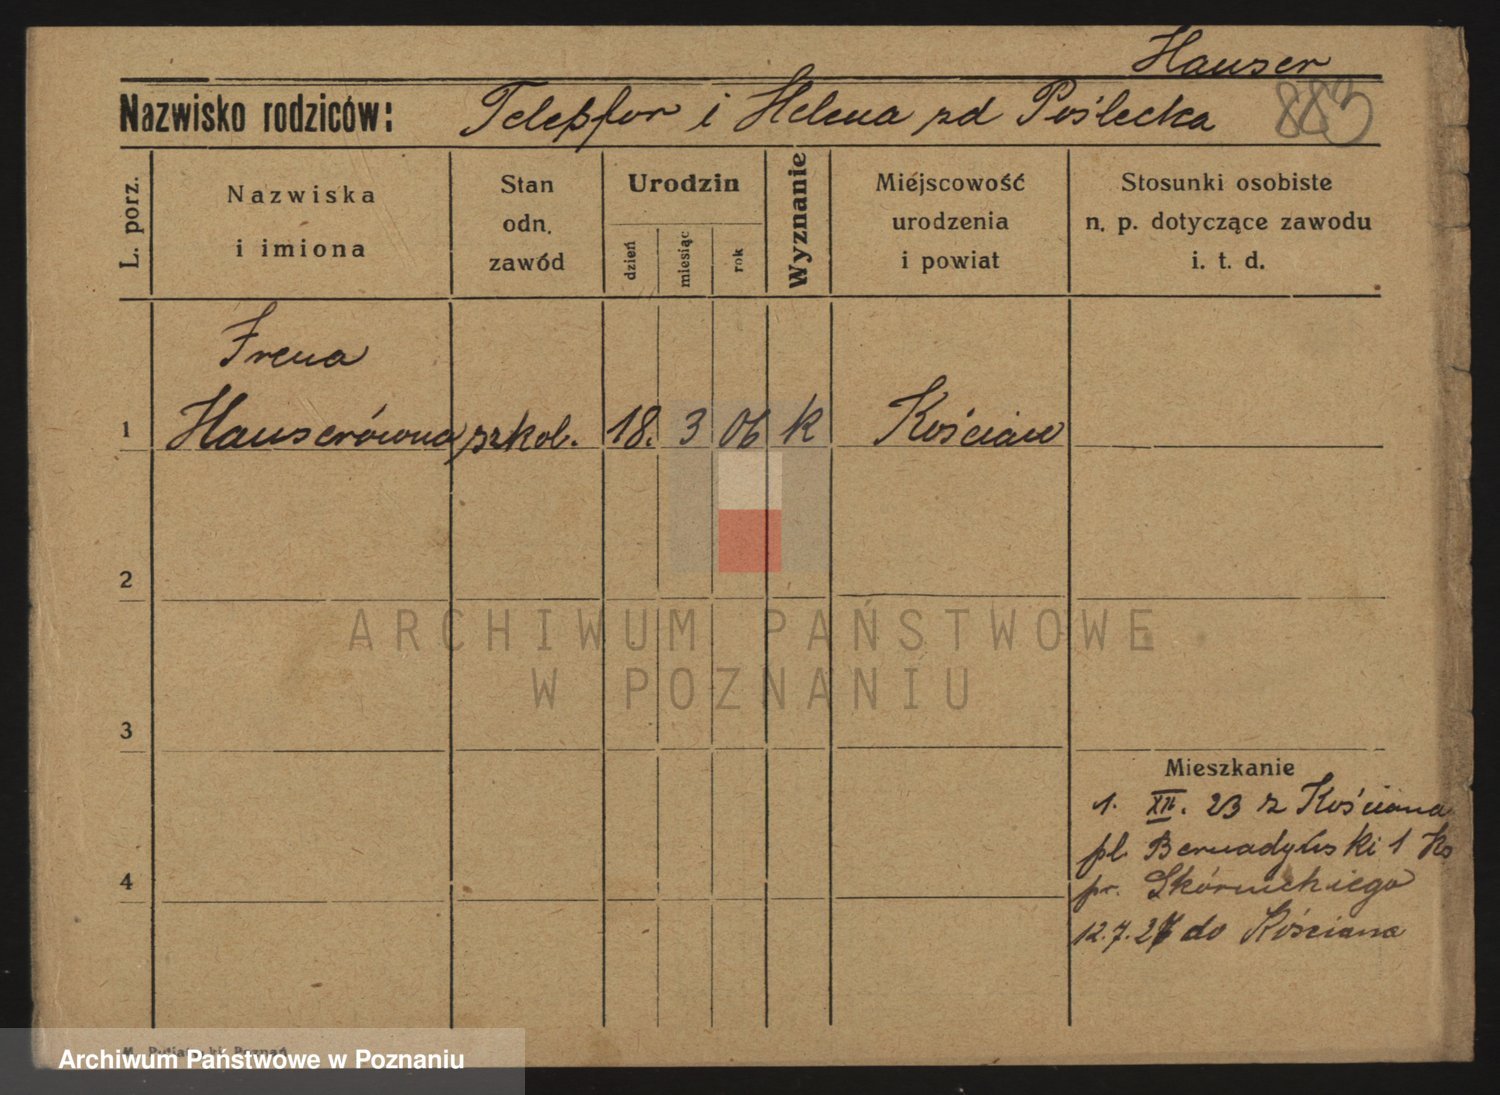 Hauser
Nazwisko rodziców: Telesfor i Helena zd Poślecka
883
L. porz.
Nazwiska
i imiona
Stan
odn.
zawód
Urodzin
dzień
miesiąc
rok
Wyznanie
Miejscowość
urodzenia
i powiat
Stosunki osobiste
n. p. dotyczące zawodu
i. t. d.
Irena
1 Hauserówna szkol. 18. 3 06 k Kościan
2
ARCHIWUM PAŃSTWOWE
W POZNANIU
3
Mieszkanie
1. XII. 23 z Kościana
pl Bernadyński 1
4
pr.
12.7.27 do Kościana
Poznań
Archiwum Państwowe w Poznaniu